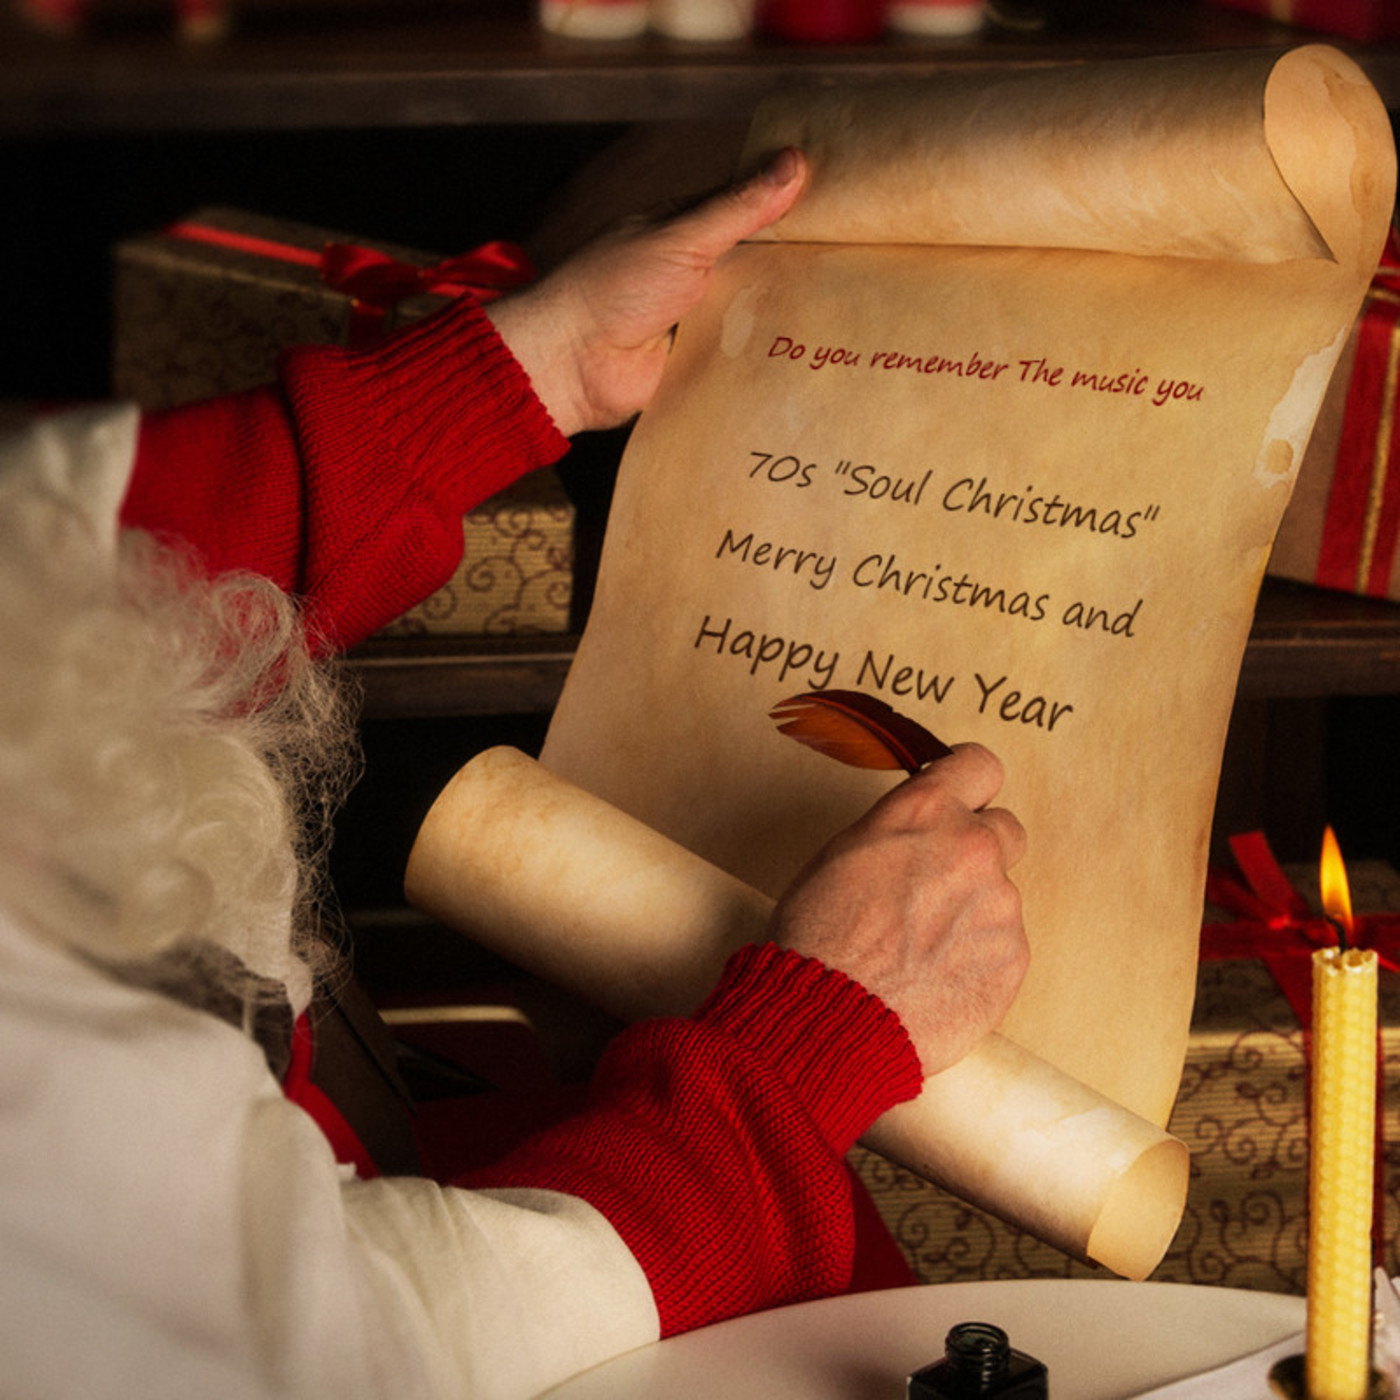 Do you remember The music you
70s "Soul Christmas"
Merry Christmas and
Happy New Year